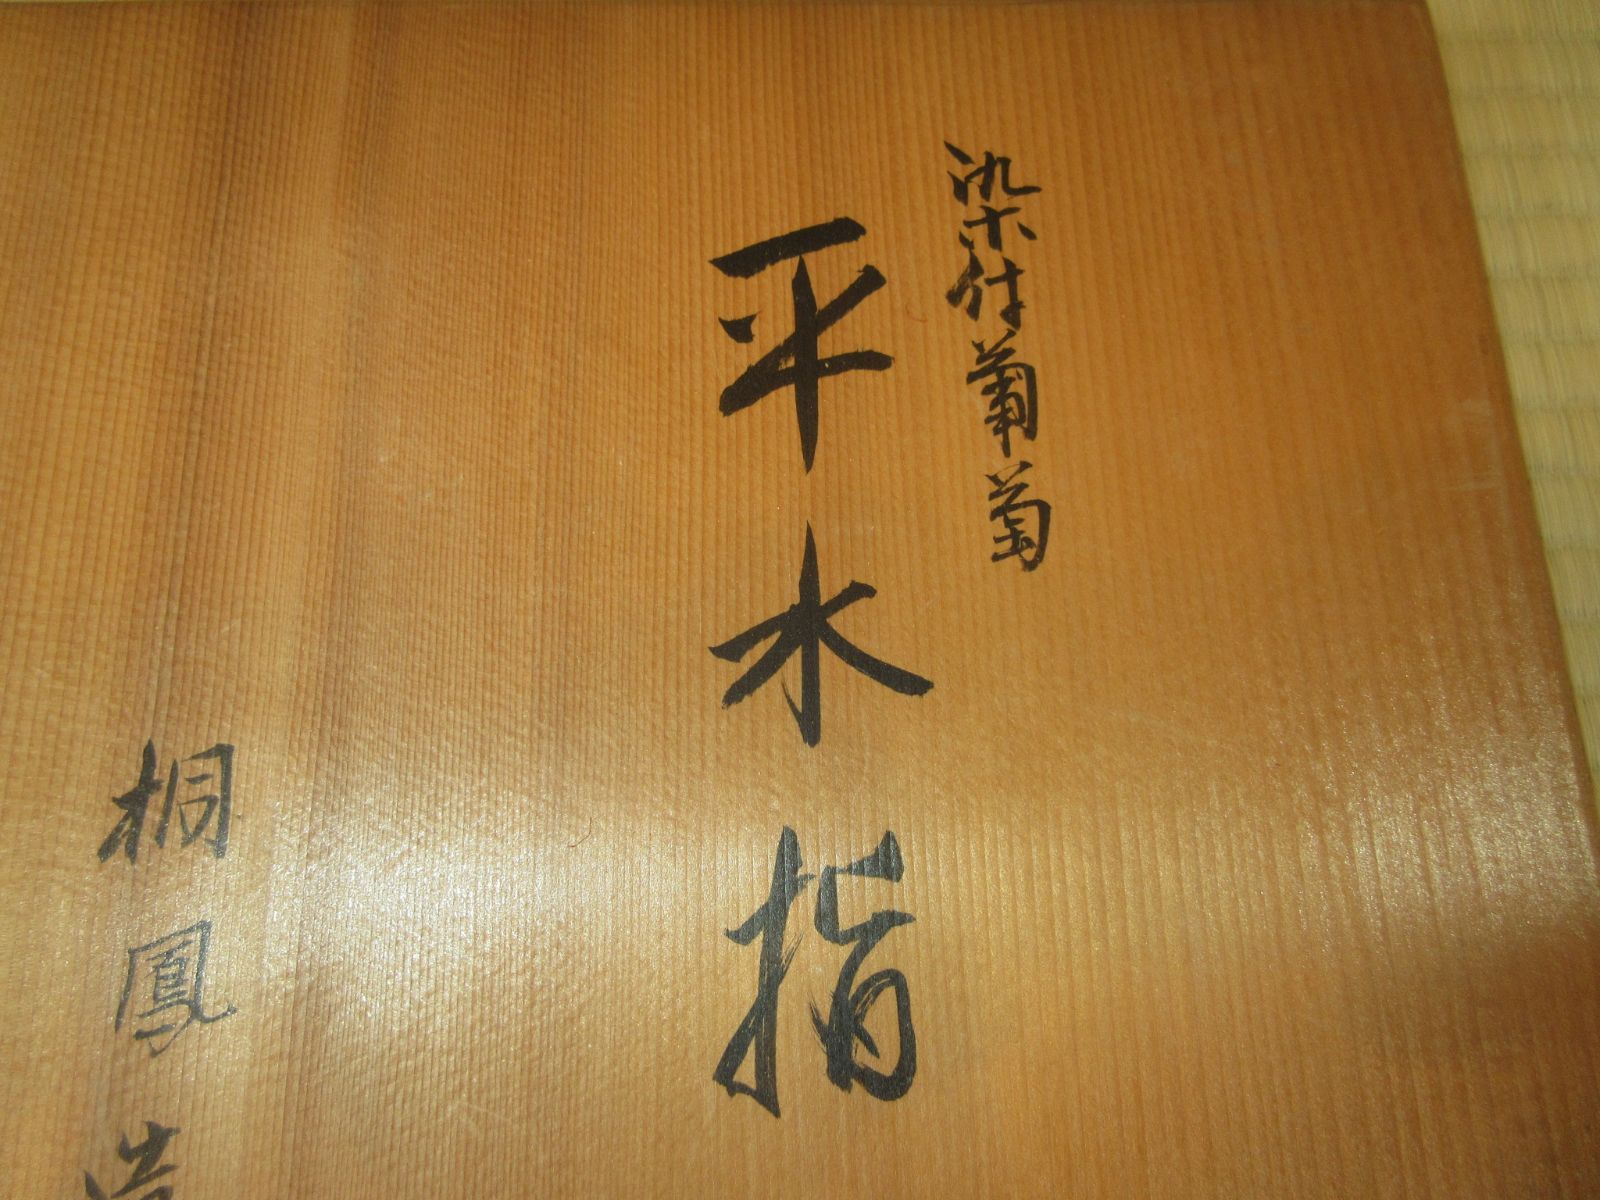 染付葡萄
平水指
桐鳳造